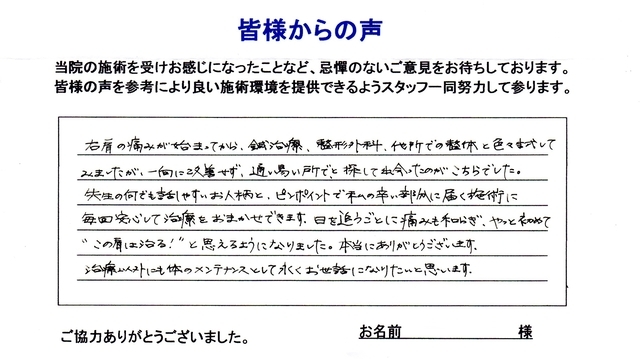 皆様からの声
当院の施術を受けお感じになったことなど、忌憚のないご意見をお待ちしております。
皆様の声を参考により良い施術環境を提供できるようスタッフ一同努力して参ります。
右肩の痛みが始まってから、鍼治療、整形外科、他所での整体と色々試して
みましたが、一向に改善せず、通い易い所でと探して出会ったのがこちらでした。
先生の何でも話しやすいお人柄と、ピンポイントで私の辛い部分に届く施術に
毎回安心して治療をおまかせできます。日を追うごとに痛みも和らぎ、やっと初めて
"この肩は治る!"と思えるようになりました。本当にありがとうございます。
治療以外にも体のメンテナンスとして永くお世話になりたいと思います。
ご協力ありがとうございました。
お名前 様